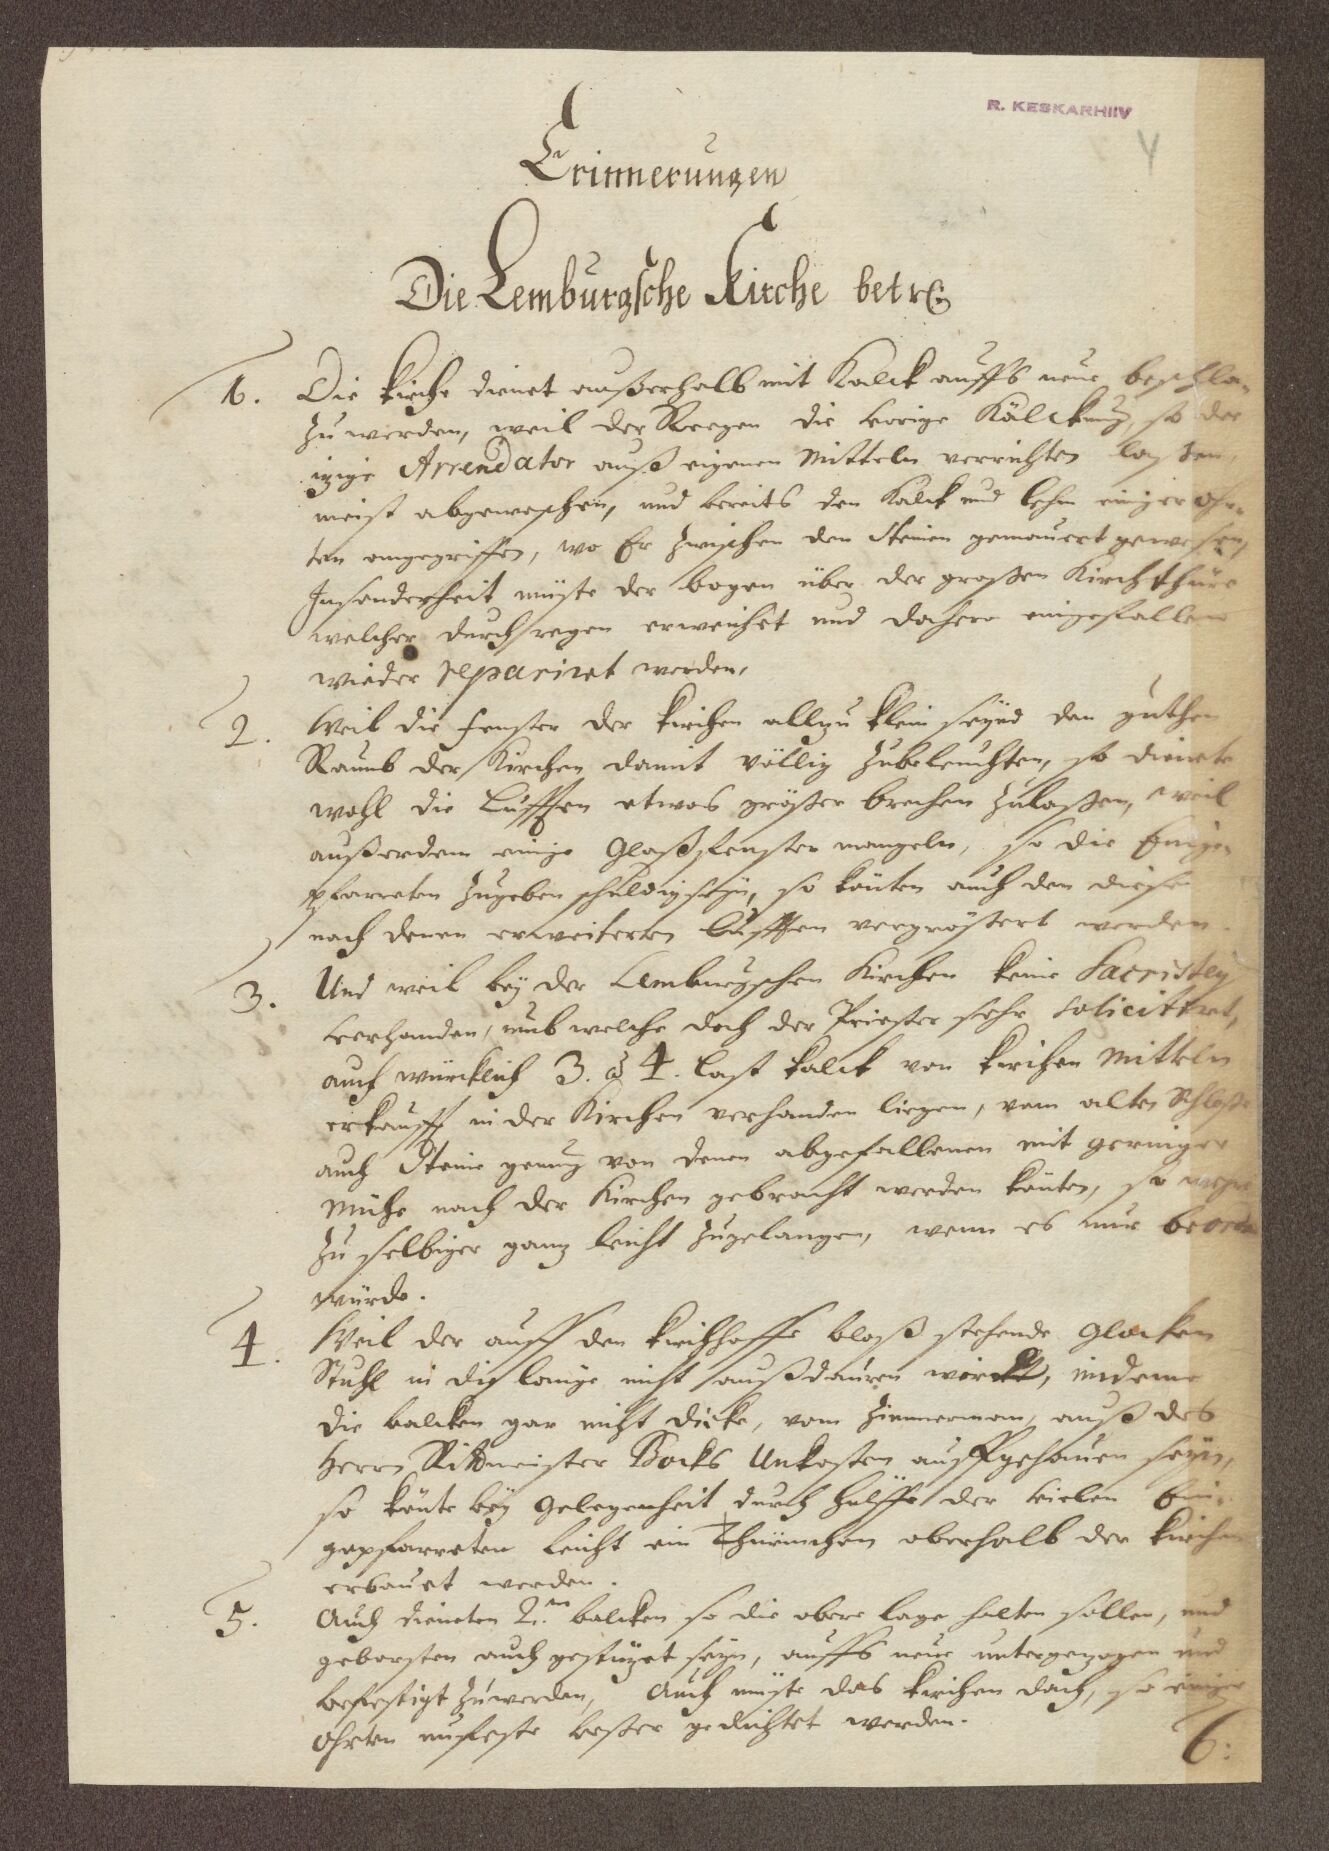 R. KESKARHIIV
4
Erinnerungen
Die Lemburgsche Kirche betr.
1. Die Kirche dienet außerhalb mit Kalck auffs neue beschla-
zu werden, weil der Reegen die vorige Kälckung, so der
itzige Arrendator auß eigenen Mitteln verrichten laßen,
meist abgewaschen, und bereits den Kalck und lehm einiger Ohr-
ten angegriffen, wo Er zwischen den Steinen gemauert gewesen,
Insonderheit müste der bogen über der großen Kirchthüre
welcher durch regen erweichet und dahero eingefallen
wieder repariret werden.
2. Weil die Fenster der Kirchen allzu klein seynd den gantzen
Raum der Kirchen damit völlig zubeleuchten, so dienete
wohl die Lufften etwas größer brechen zulaßen, weil
außerdem einige Glaßfenster mangeln, so die Einge-
pfarreten zugeben schuldig seyn, so könten auch den diese
nach denen erweiterten Lufften vergrößert werden.
3. Und weil bey der Lemburgschen Kirchen keine Sacristey
verhanden, umb welche doch der Priester sehr soliciteret,
auch würcklich 3. à 4. last Kalck von Kirchen Mitteln
erkaufft in der Kirchen verhanden liegen, vom alten Schloße
auch Steine genug von denen abgefallenen mit geringer
Mühe nach der Kirchen gebracht werden könten, so were
zu selbiger gantz leicht zugelangen, wenn es nur beord
würde.
4. Weil der auff den Kirchhoffe bloß stehende Glocken
Stuhl in die lange nicht außdauren wird, indeme
die balcken gar nicht dicke, vom Zimmerman, auß des
Herrn Rittmeister Bocks Unkosten auffgehauen seyn,
so könte bey Gelegenheit durch hülffe der vielen Ein-
gepfarreten leicht ein Thürmchen oberhalb der Kirchen
erbauet werden.
5. Auch dieneten 2. balcken so die obere lage halten sollen, und
geborsten auch gestützet seyn, auffs neue untergezogen und
befestigt zuwerden, Auch müste das Kirchen dach, so einiger
Ohrten unfeste beßer gedichtet werden.
6: